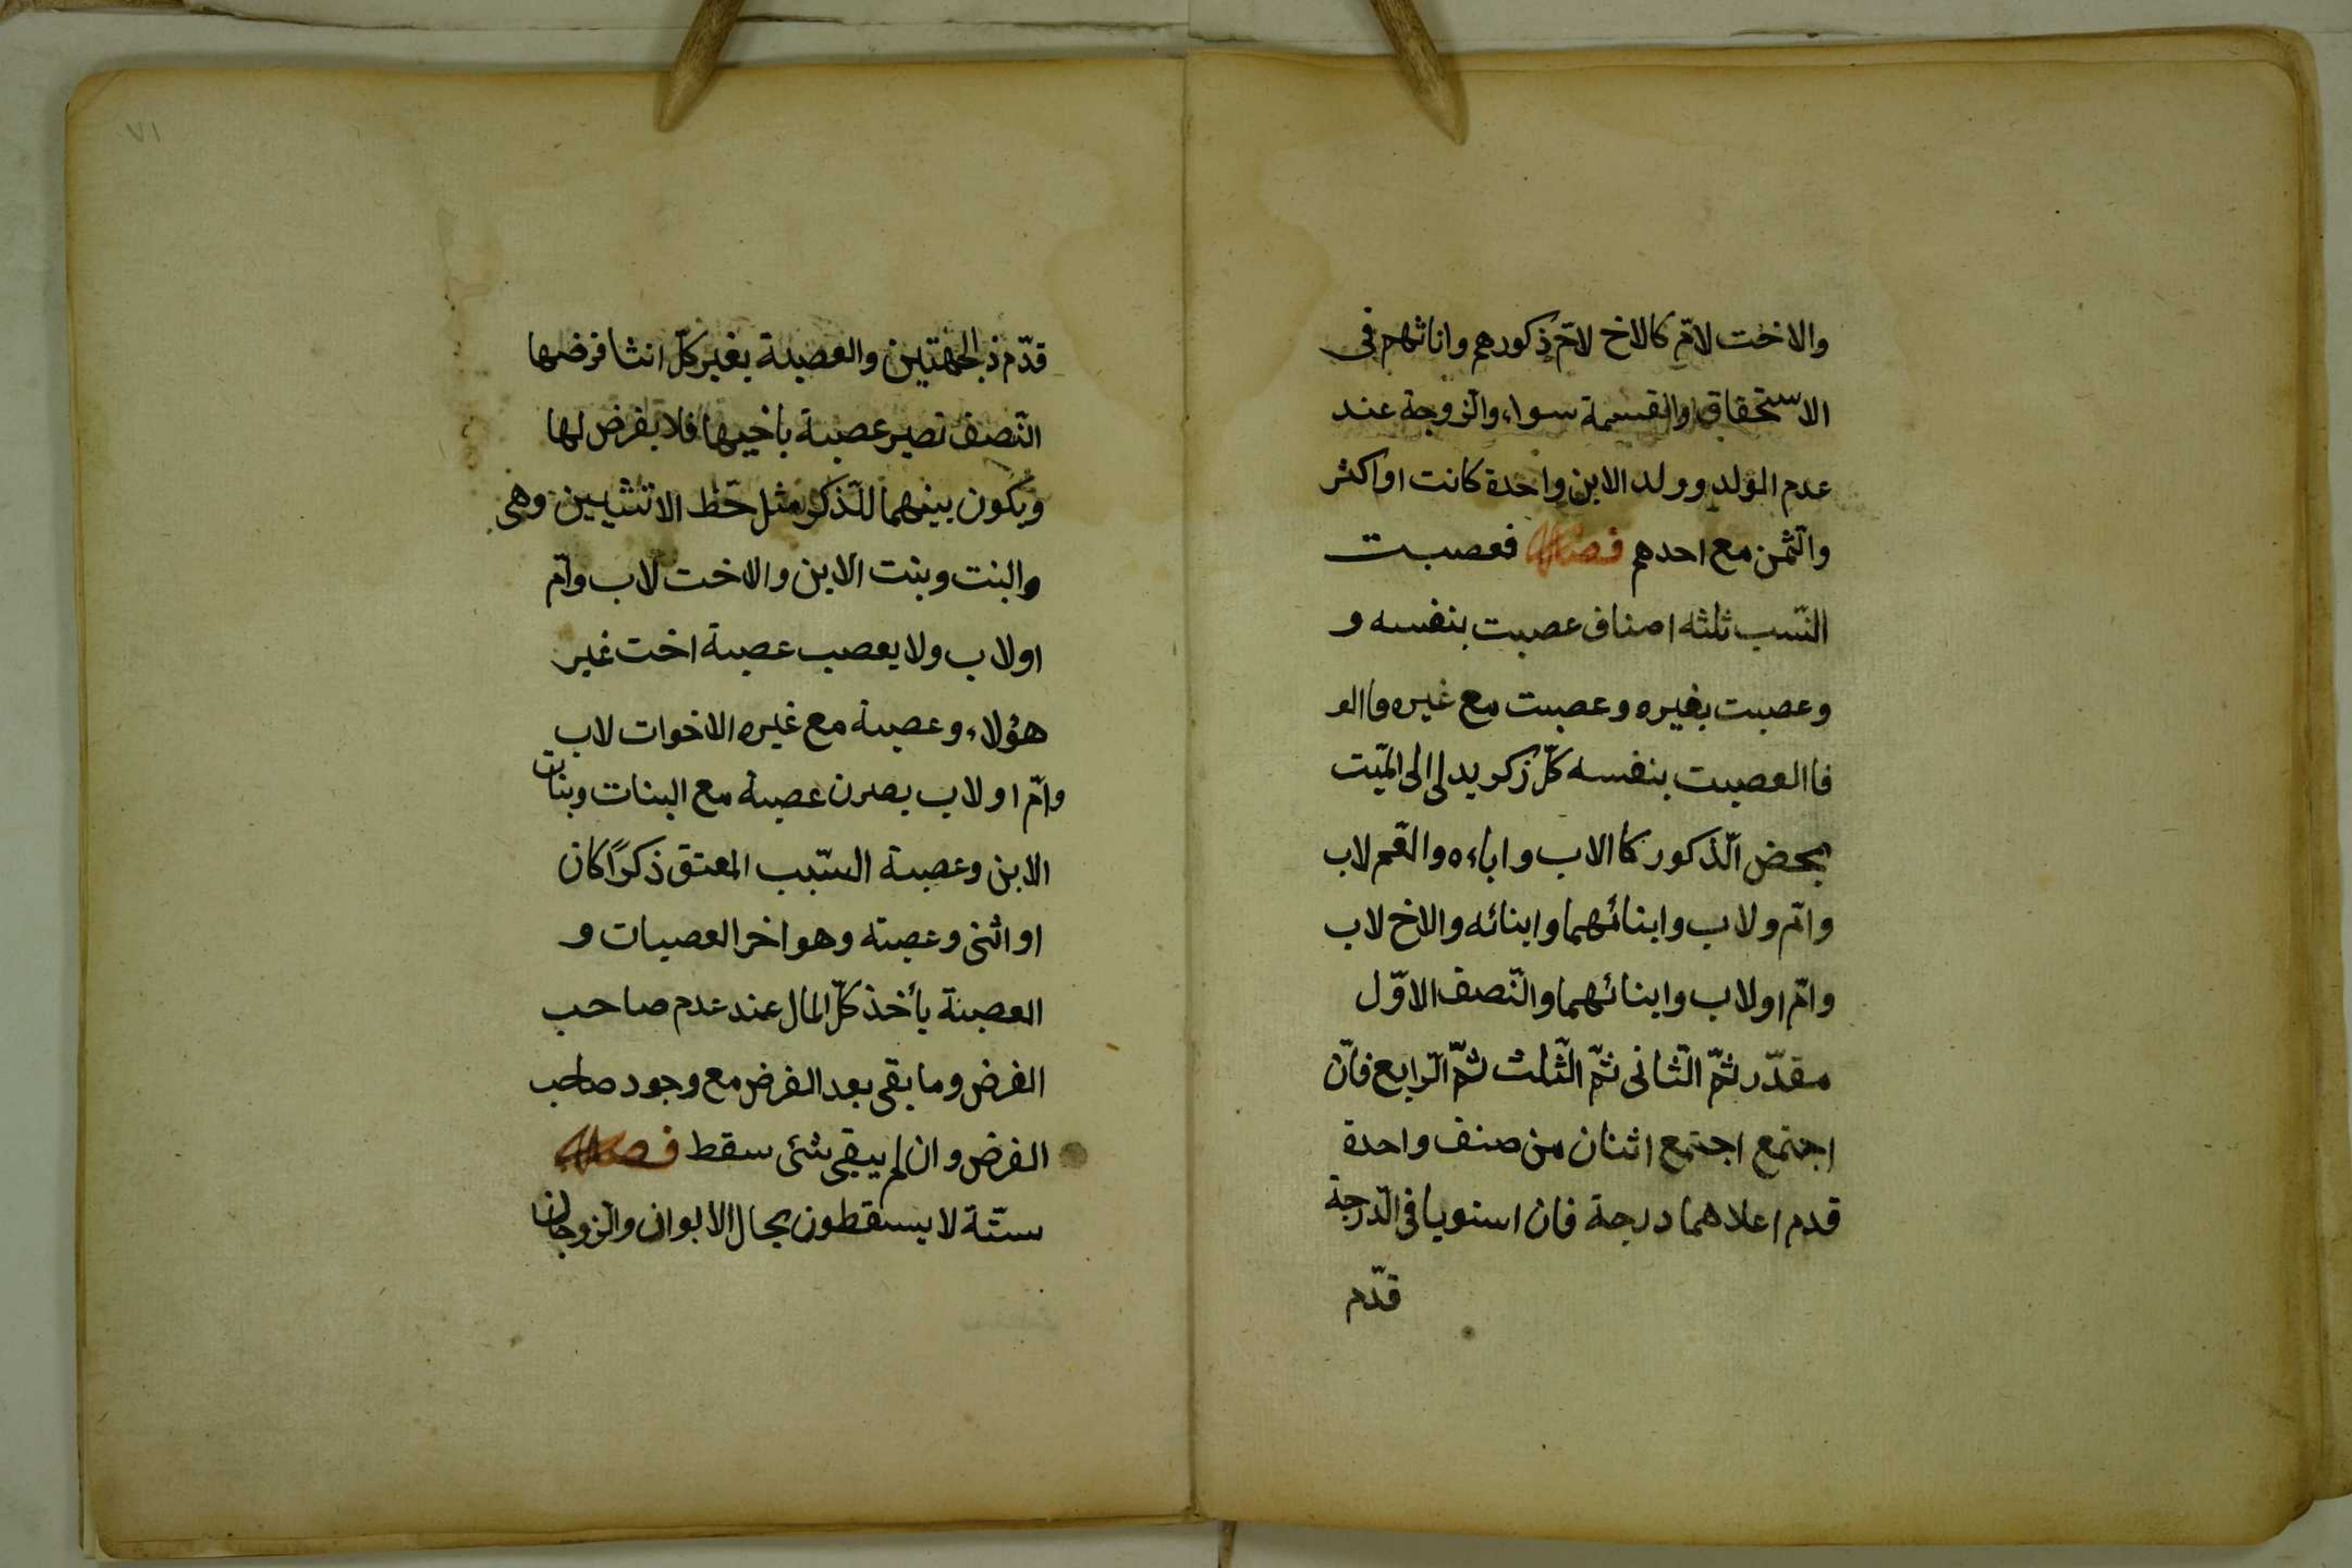 والاخت لامّ كالاخ لامّ ذكورهم واناثهم فى
الاستحقاق والقسمة سواء، والزوجة عند
عدم الولد وولد الابن واحدة كانت او اكثر
والثّمن مع احدهم فصل فعصبت
النّسب ثلثه اصناف عصبت بنفسه و
وعصبت بغيره وعصبت مع غيره فاالعـ
فاالعصبت بنفسه كلّ زكر يدلى الى الميّت
بمحض الّذكور كاالاب واباءه والعّم لاب
وامّ ولاب وابنائهما وابنائه والاخ لاب
وامّ اولاب وابنائهما والنّصف الاوّل
مقدّر ثمّ الثّانى ثمّ الثّلث ثمّ الرّابع فانّ
اجتمع اجتمع اثنان من صنف واحدة
قدم اعلاهما درجة فان استويا فى الدّرجة
قدّم
٧١
قدّم ذالجهتين والعصبة بغير كلّ انثا فرضها
النّصف تصير عصبة باخيها فلا يفرض لها
ويكون بينهما للّذكر مثل حّظ الانثيين وهى
والبنت وبنت الابن والاخت لاب وامّ
اولاب ولا يعصب عصبة اخت غير
هؤلاء، وعصبة مع غيره الاخوات لاب
وامّ اولاب يصرن عصبة مع البنات وبنات
الابن وعصبة السّبب المعتق ذكرًا كان
او اثنى وعصبته وهو اخر العصبات و
العصبة يأخذ كلّ المال عند عدم صاحب
الفرض وما بقى بعد الفرض مع وجود صاحب
الفرض وان لم يبقى شئى سقط فصل
ستّة لا يسقطون بحال الابوان والزّوجان